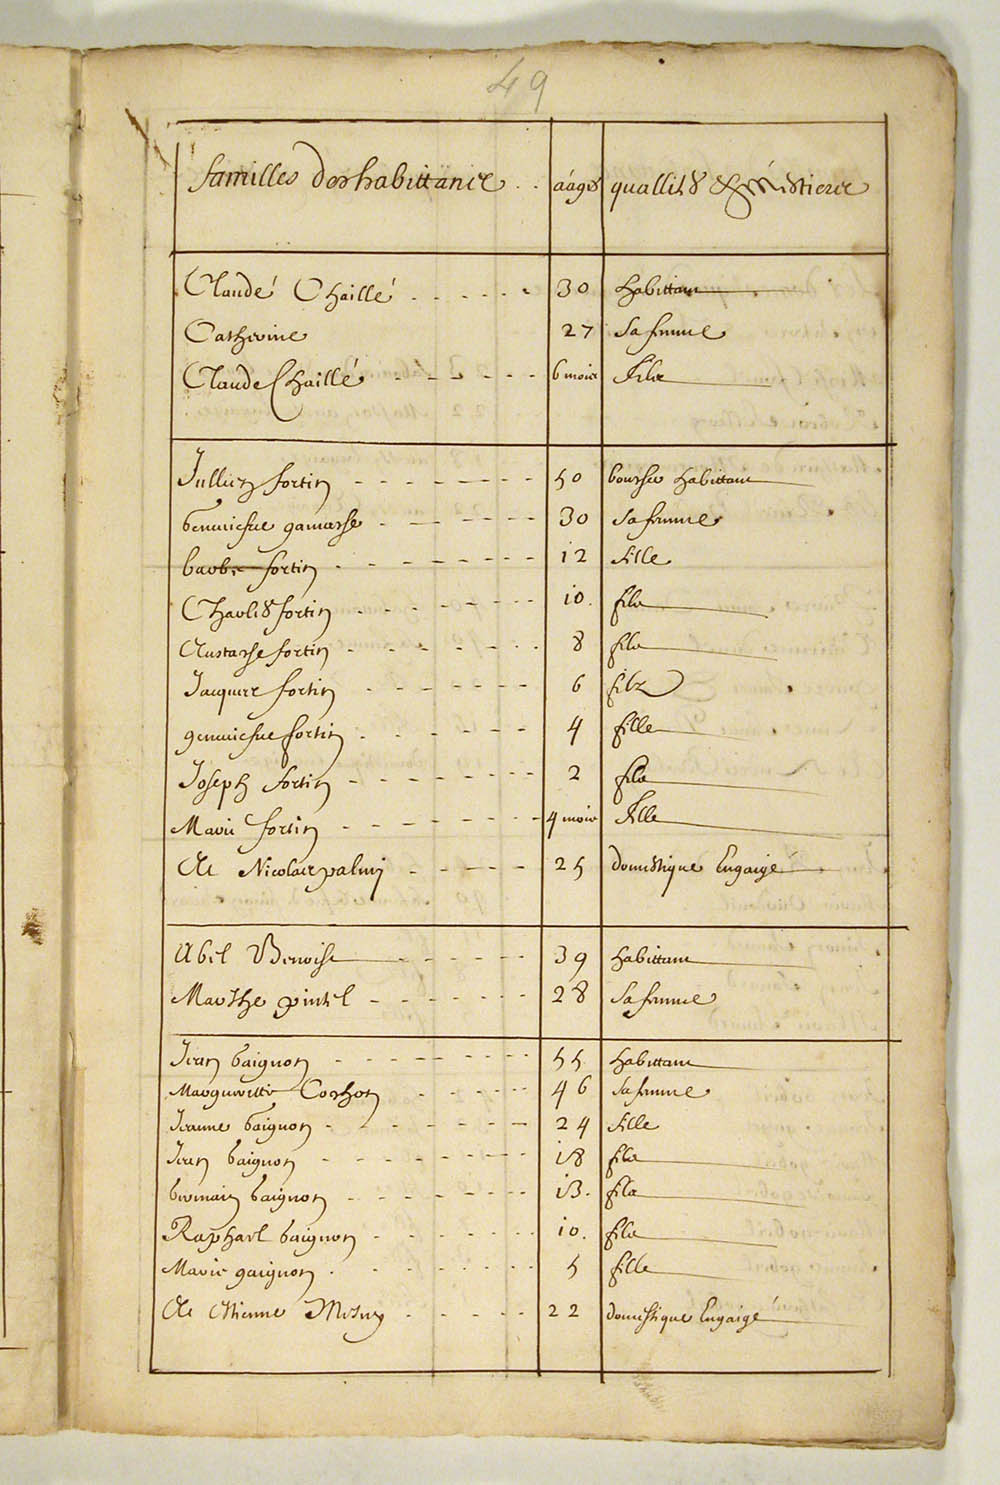 49
familles des habittans . . aâges quallités & mestiers
Claude Chaillé . . . . . . 30 habittant
Catherine 27 sa femme
Claude Chaillé - - - - - - 6 mois filz
Jullien fortin - - - - - - - - 50 boucher habittant
Genuiefue gamasche - - - - - - - 30 sa femme
barbe fortin - - - - - - - 12 fille
Charles fortin - - - - - - - 10. filz
Eustasche fortin - - - - - - - 8 filz
Jacques fortin - - - - - - - 6 filz
genuiefue fortin - - - - - - 4 fille
Joseph fortin - - - - - - - - 2 filz
Marie fortin - - - - - - - - 4 mois fille
Et Nicolas - - - - - 25 domestique Engaigé
Abel Benoist - - - - - 39 habittant
Marthe pintel - - - - - - - 28 sa femme
Jean gaignon - - - - - - - - 55 habittant
Margueritte Cochon - - - - - 46 sa femme
Jeanne gaignon - - - - - - - - 24 fille
Jean gaignon - - - - - - - - 18 filz
Germain gaignon - - - - - - - 13. filz
Raphael gaignon - - - - - - - 10. filz
Marie gaignon . - - - - - - - 5 fille
Et Estienne - - - - - 22 domestique Engaigé